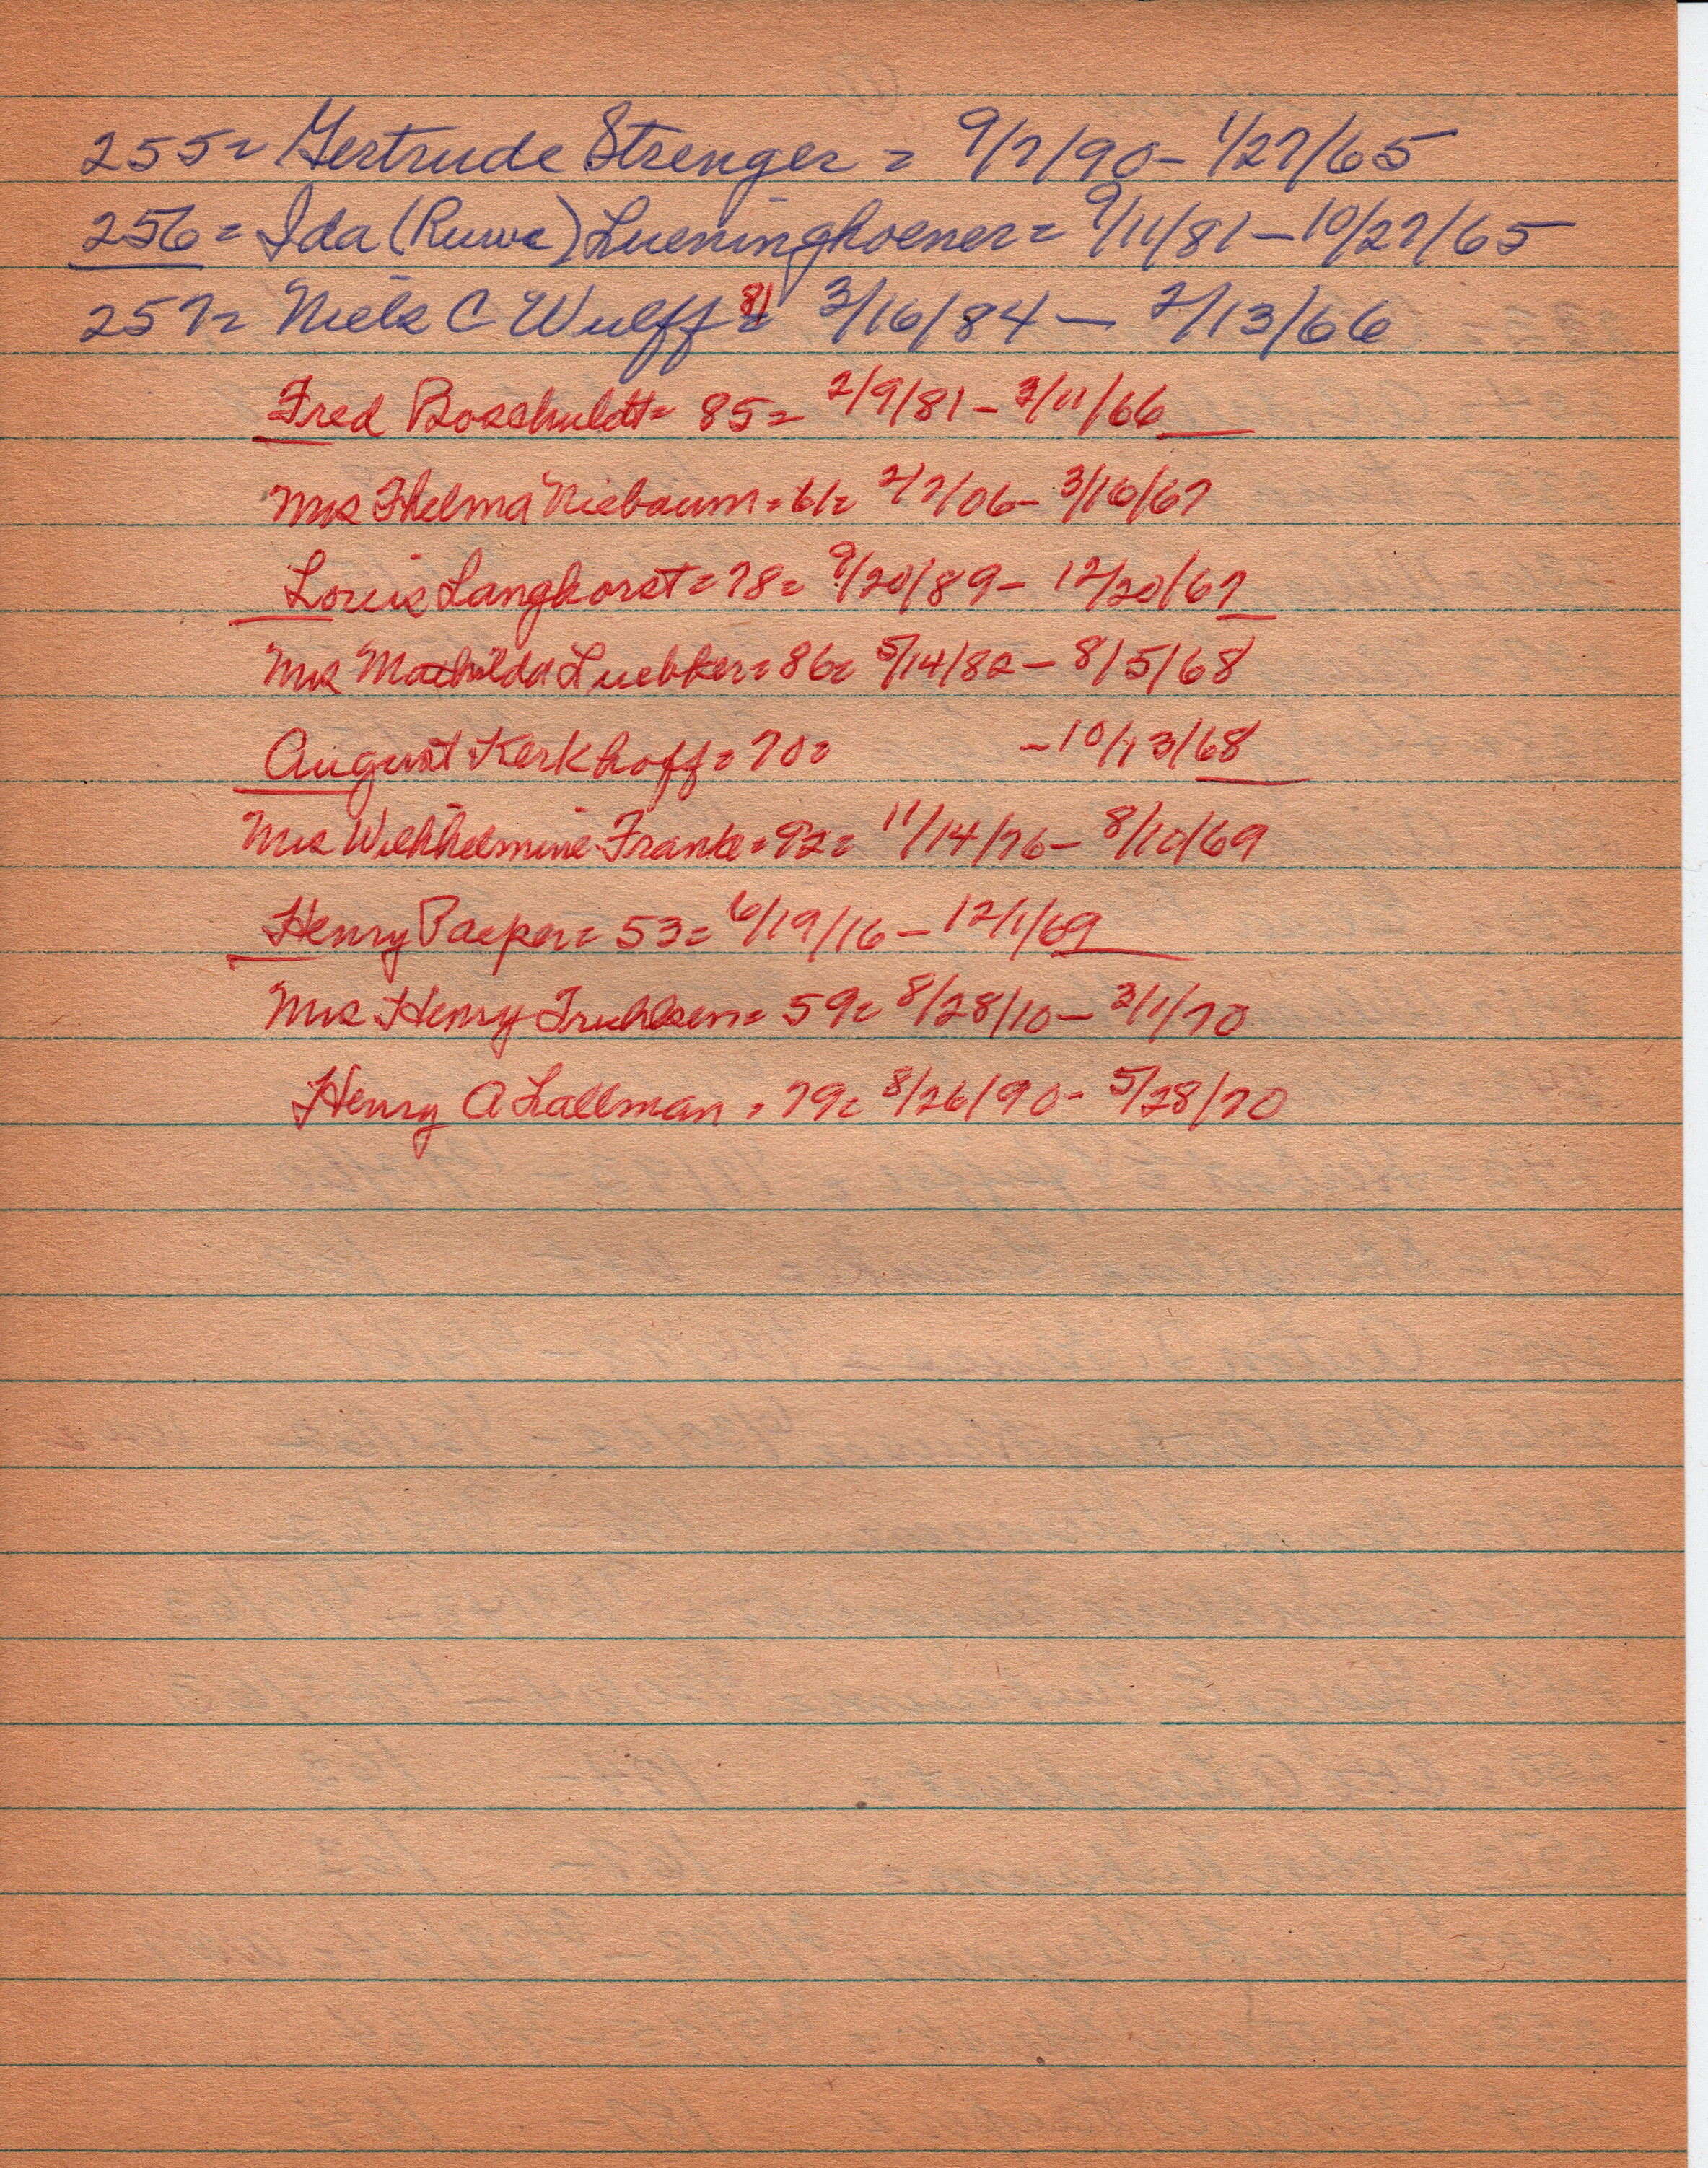 255= Gertrude Strenger = 9/7/90 - 1/27/65
256 = Ida (Ruwe) Lueninghoener = 9/11/81 - 10/27/65
257= Niels C Wulff = 81 3/16/84 - 2/13/66
Fred Boschuldt= 85= 2/9/81 - 3/11/66
Mrs Thelma Niebaum = 61= 2/7/06 - 3/16/67
Louis Langhorst = 78= 9/20/89 - 12/20/67
Mrs Mathilda Luebker= 86= 5/14/82 - 8/5/68
August Kerkhoff= 70= - 10/13/68
Mrs Wilhhelmine Franke = 92= 11/14/76 - 8/10/69
Henry Paeper= 53= 6/19/16 - 12/1/69
Mrs Henry Truhlsen= 59= 8/28/10 - 3/1/70
Henry A Lallman = 79= 8/26/90 - 5/28/70